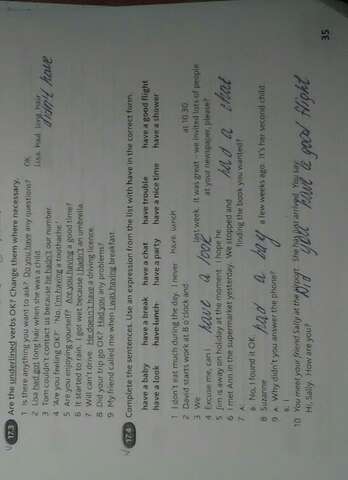 17.3 Are the underlined verbs OK? Change them where necessary.
1 Is there anything you want to ask? Do you have any questions? OK
2 Lisa had got long hair when she was a child. Lisa had long hair
3 Tom couldn't contact us because he hadn't our number. didn't have
4 'Are you feeling OK?' 'No, I'm having a toothache.'
5 Are you enjoying yourself? Are you having a good time?
6 It started to rain. I got wet because I hadn't an umbrella.
7 Will can't drive. He doesn't have a driving licence.
8 Did your trip go OK? Had you any problems?
9 My friend called me when I was having breakfast.
17.4 Complete the sentences. Use an expression from the list with have in the correct form.
have a baby have a break have a chat have trouble have a good flight
have a look have lunch have a party have a nice time have a shower
1 I don't eat much during the day. I never have lunch
2 David starts work at 8 o'clock and at 10.30.
3 We last week. It was great – we invited lots of people.
4 Excuse me, can I have a look at your newspaper, please?
5 Jim is away on holiday at the moment. I hope he
6 I met Ann in the supermarket yesterday. We stopped and had a chat
7 A: finding the book you wanted?
B: No, I found it OK.
8 Suzanne had a a few weeks ago. It's her second child.
9 A: Why didn't you answer the phone?
B: I
10 You meet your friend Sally at the airport. She has just arrived. You say:
Hi, Sally. How are you? you have a good flight
35